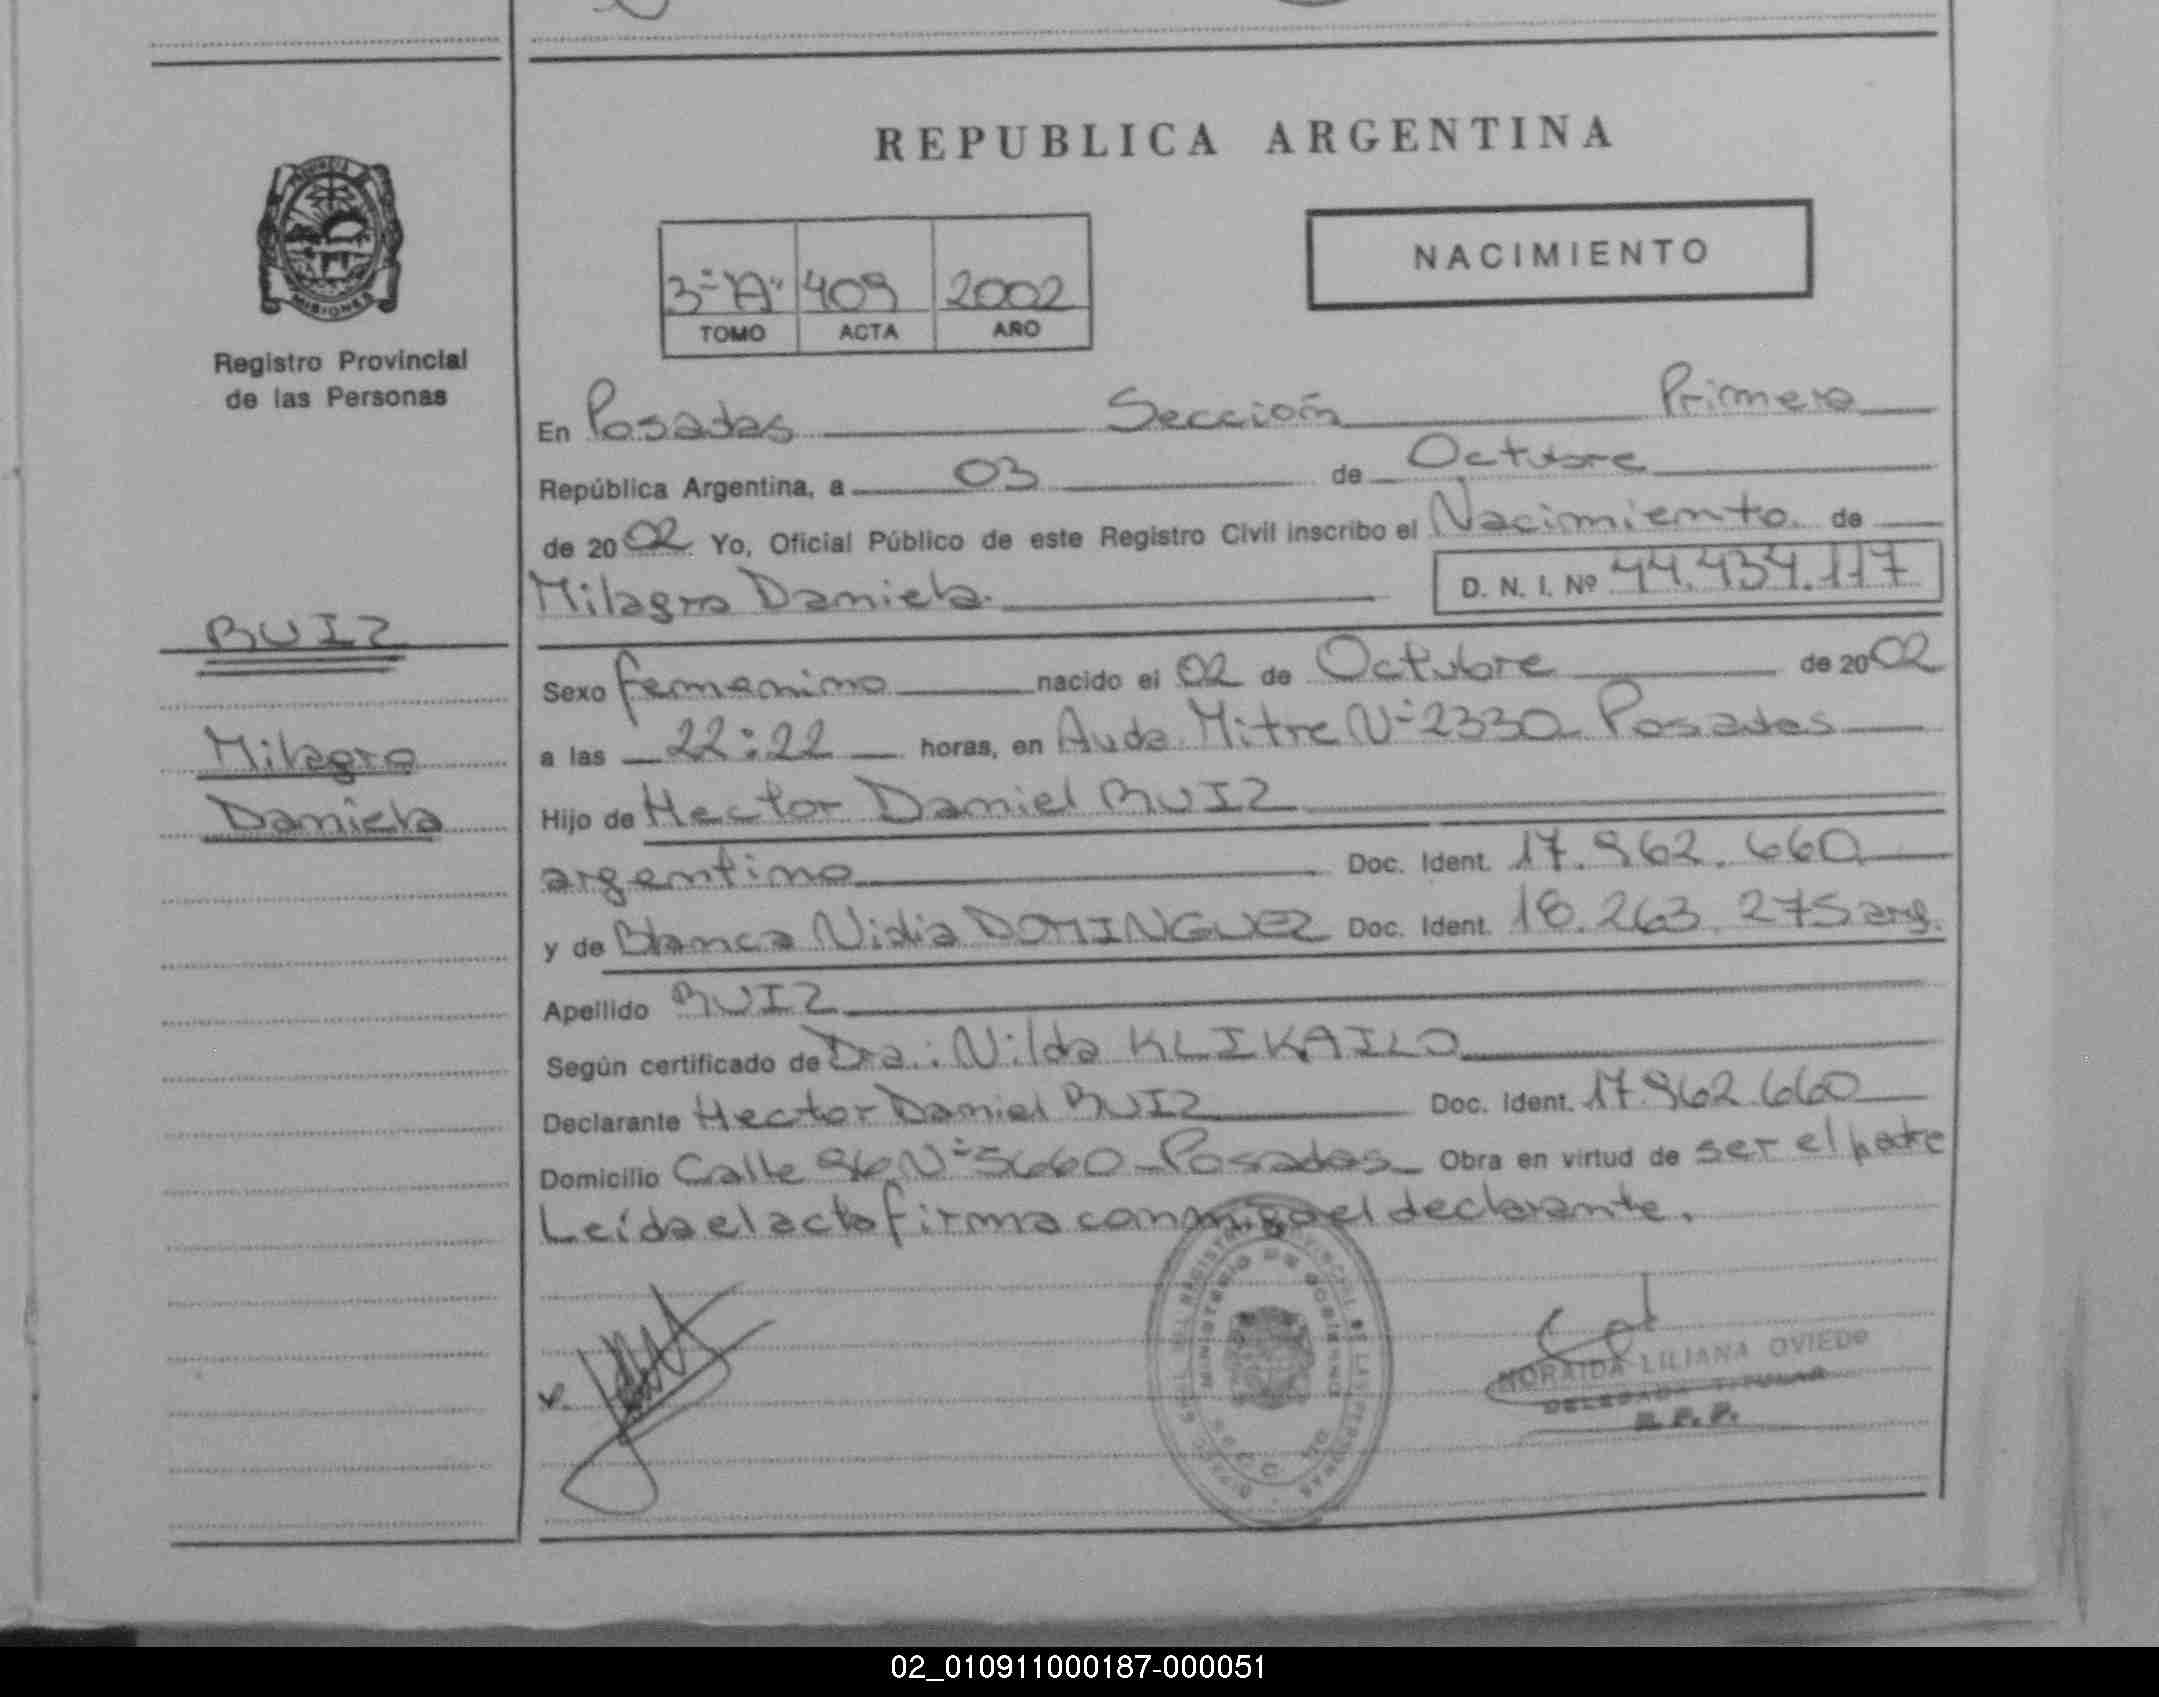 REPUBLICA ARGENTINA
MISIONES
Registro Provincial
de las Personas
NACIMIENTO
3-"A" 409 2002
TOMO ACTA AÑO
En Posadas Sección Primera
República Argentina, a 03 de Octubre
de 2002 Yo, Oficial Público de este Registro Civil inscribo el Nacimiento de
Milagro Daniela. D. N. I. Nº 44.434.117
RUIZ
Milagro
Daniela
Sexo femenino nacido el 02 de Octubre de 2002
a las 22:22 horas, en Avda. Mitre Nº 2330 Posadas
Hijo de Hector Daniel RUIZ
argentino Doc. Ident. 17.962.660
y de Blanca Nidia DOMINGUEZ Doc. Ident. 18.263.275 arg.
Apellido RUIZ
Según certificado de Dra.: Nilda KLIKAILO
Declarante Hector Daniel RUIZ Doc. Ident. 17.962.660
Domicilio Calle 96 Nº 5660 Posadas Obra en virtud de ser el padre
Leída el acta firma conmigo el declarante.
NORAIDA LILIANA OVIEDO
DELEGADA TITULAR
R. P. P.
02_010911000187-000051